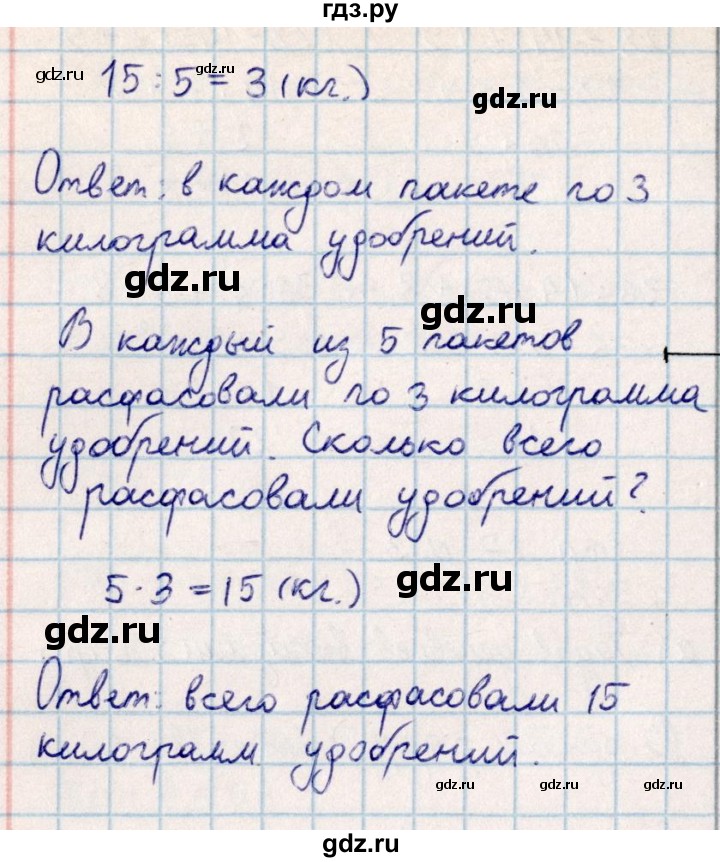 гдз.ру
gdz.ru gdz.ru
15 : 5 = 3 (кг.)
gdz.ru
Ответ: в каждом пакете по 3
килограмма удобрений.
gdz.ru
gdz.ru
В каждый из 5 пакетов
расфасовали по 3 килограмма
удобрений. Сколько всего
расфасовали удобрений?
5 · 3 = 15 (кг.)
gdz.ru
gdz.ru
Ответ: всего расфасовали 15
килограмм удобрений.
gdz.ru gdz.ru gdz.ru
gdz.ru